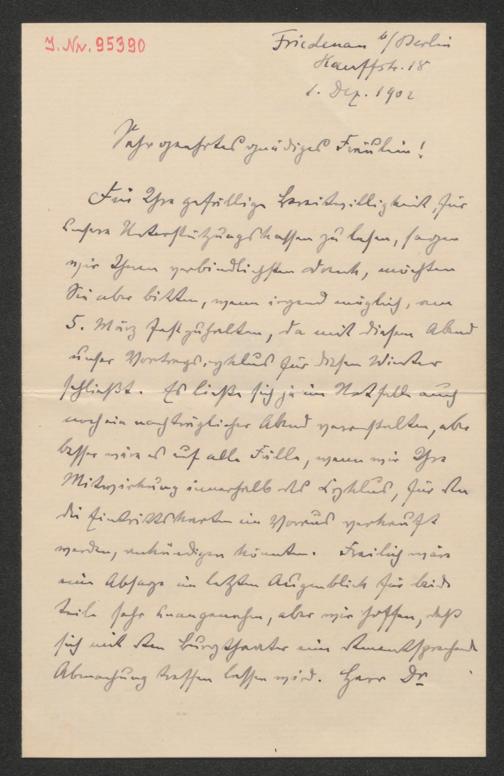 J. Nr. 95390
Friedenau b/Berlin
Hauffstr. 18
1. Dez. 1902
Sehr geehrtes gnädiges Fräulein!
Für Ihre gefällige Bereitwilligkeit, für
unsere Unterstützungskassen zu lesen, sagen
wir Ihnen verbindlichsten Dank, möchten
Sie aber bitten, wenn irgend möglich, am
5. März festzuhalten, da mit diesem Abend
unser Vortragszyklus für diesen Winter
schließt. Es ließe sich ja im Notfalle auch
noch ein nachträglicher Abend veranstalten, aber
besser wäre es auf alle Fälle, wenn wir Ihre
Mitwirkung innerhalb des Cyklus, für den
die Eintrittskarten im Voraus verkauft
werden, ankündigen könnten. Freilich wäre
eine Absage im letzten Augenblick für beide
Teile sehr unangenehm, aber wir hoffen, daß
sich mit dem Burgtheater eine dementsprechende
Abmachung treffen lassen wird. Herr Dr